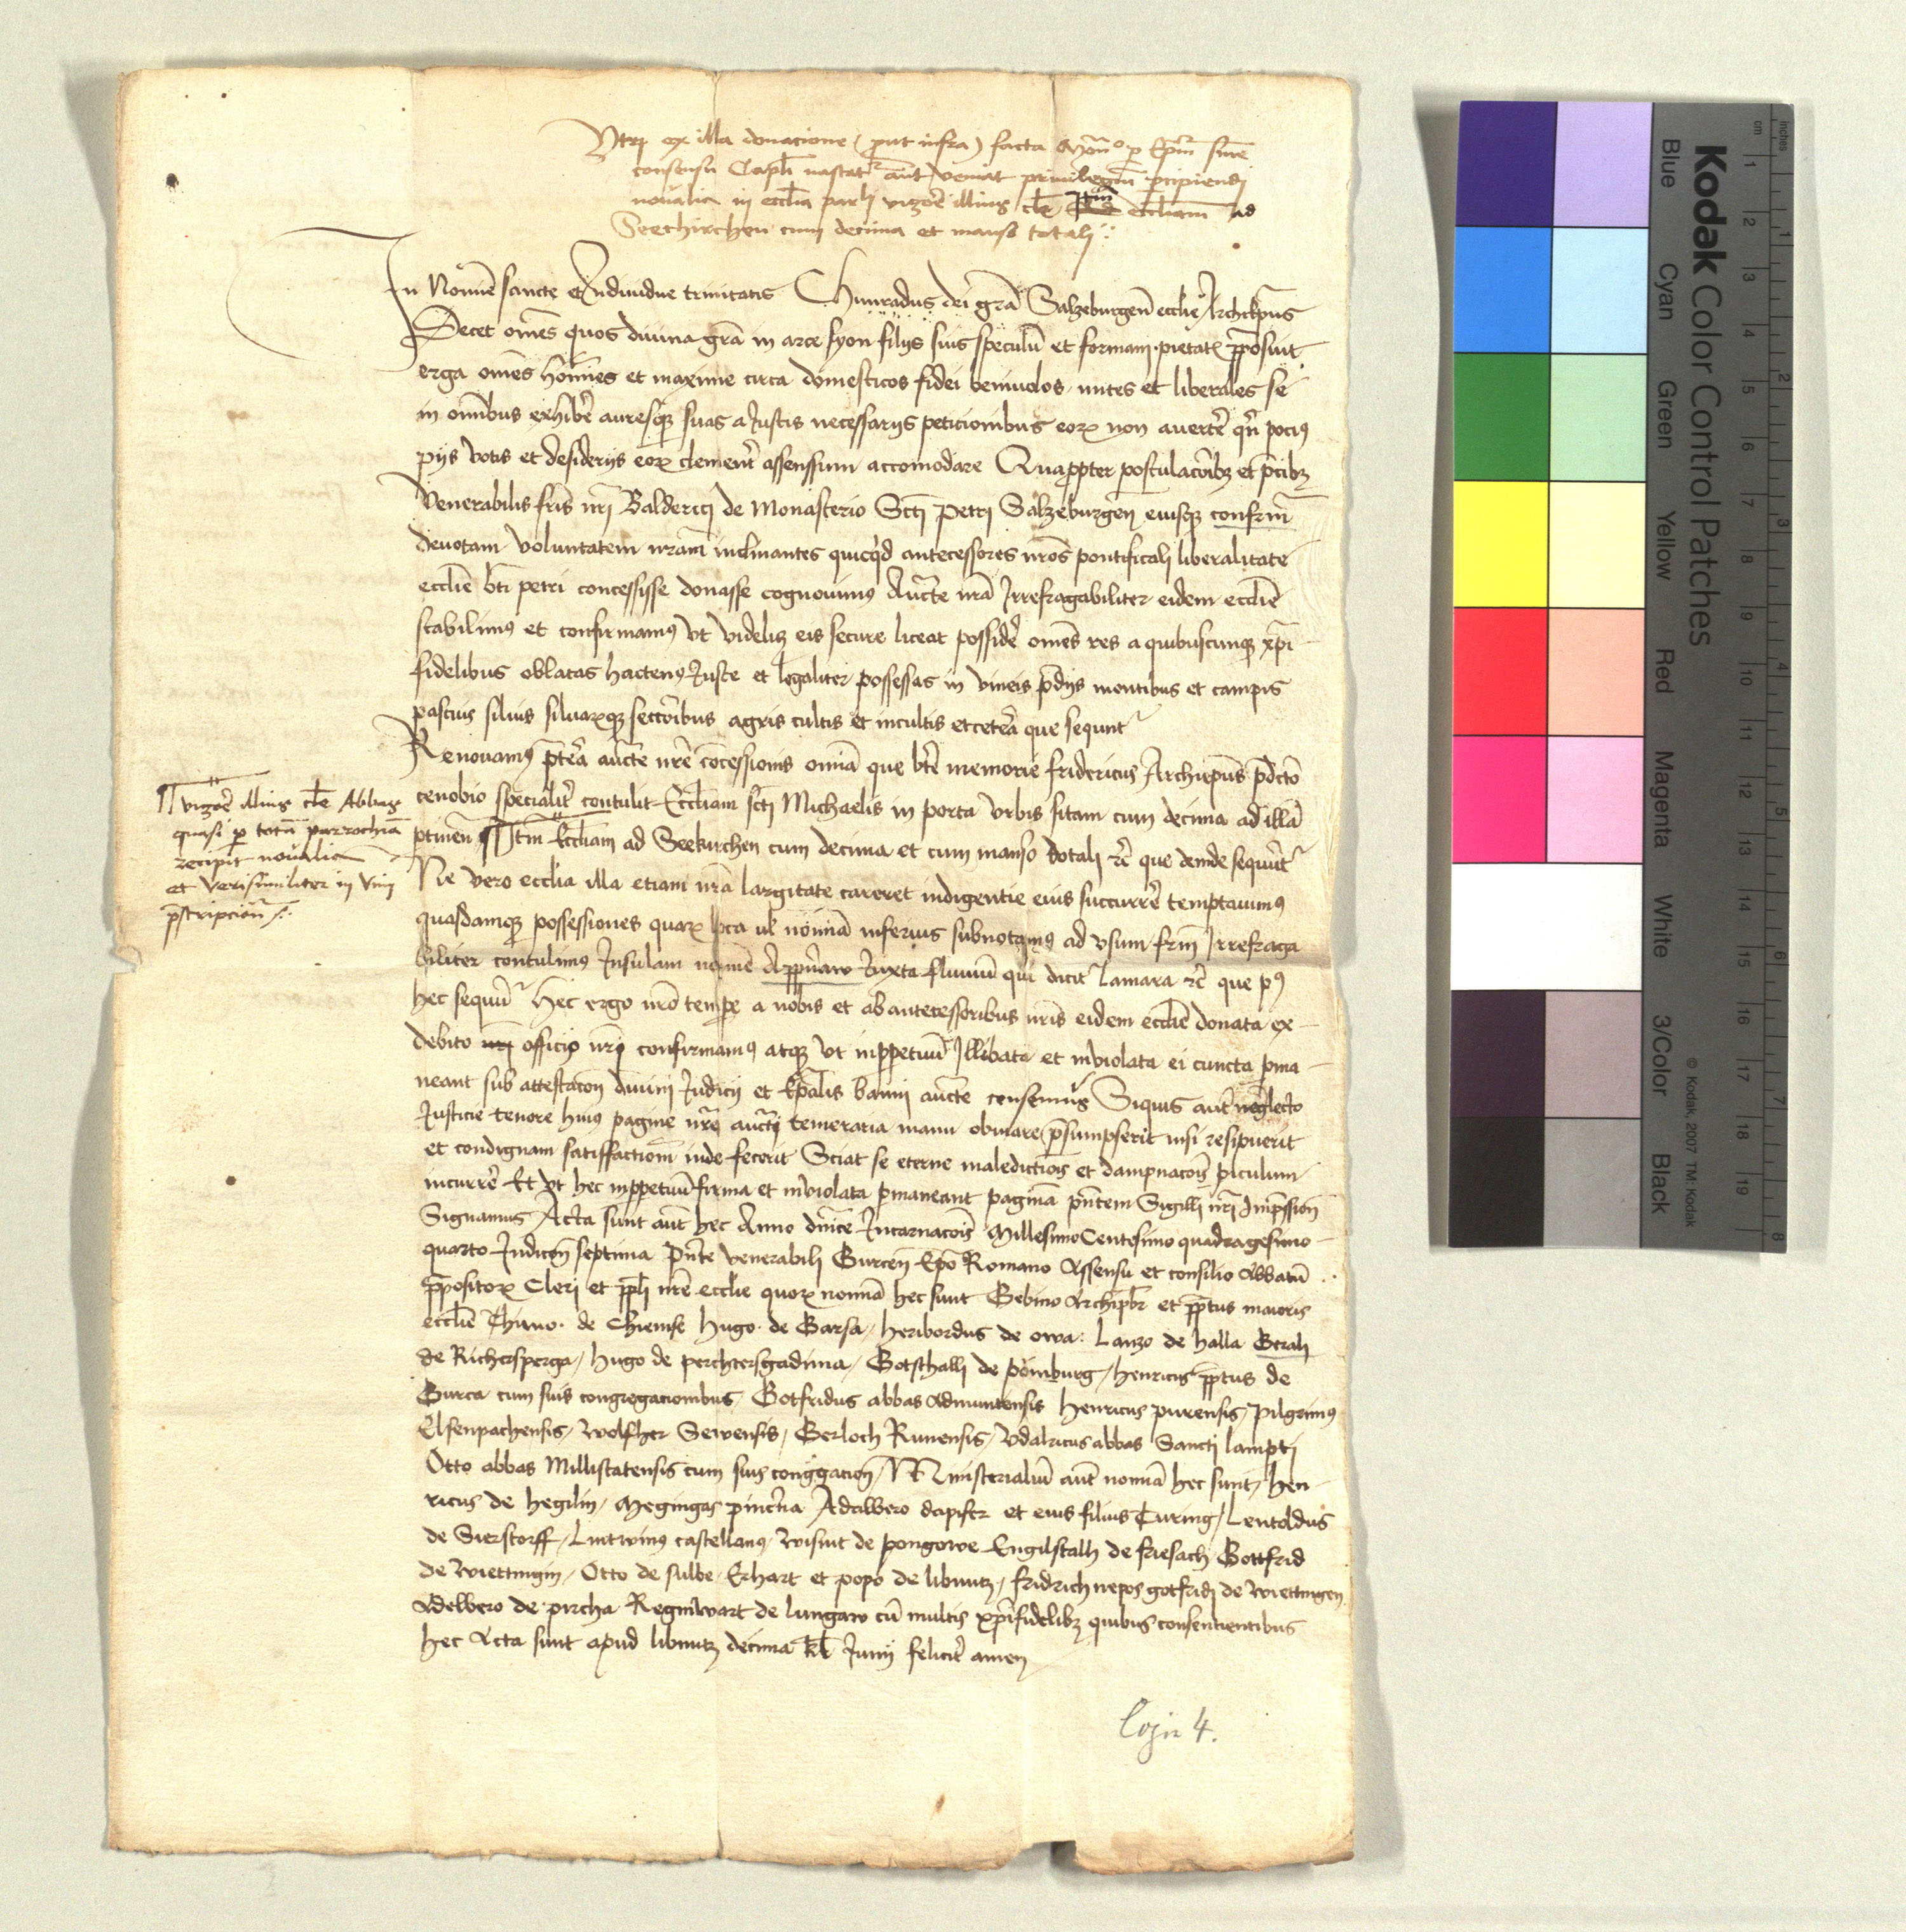 Utrum ex illa donacione (prout infra) facta Mon̄o p Ep̄m sine
consensu Capli nascatr aut veniat privilegiū p̄cipiendi
novalia in eccl̄ia parli vigore illius cl̄e Itm̄ eccl̄iam ad
Seechirchen cum decima et manso totali
In Nomīe sancte et Individue trinitatis Chunradus dei grā Salzeburgeñ eccl̄ie Archiep̄us
Decet om̄es quos divina grā in arce syon filijs suis speculū et formam pietatꝭ p̄posuit
erga om̄es hoīmes et maxime circa domesticos fidei benivolos mites et liberales se
in om̄ibus exhibēr auresqꝫ suas a Iustis necessarijs peticionibus eoꝝ non avertēr qn̄ pociꝰ
pijs votis et desiderijs eoꝝ clementr̄ assenssum accomodare Quapropter postulacōibꝫ et p̄cibꝫ
Venerabilis fr̄is nr̄i Balderici de Monasterio Sctī Petri Salzeburgeñ eiusqꝫ confrm̄
devotam voluntatem nr̄am inclinantes quicq̄d antecessores nr̄os pontificali liberalitate
eccl̄ie bt̄i petri concessisse donasse cognovimꝰ Auctt̄e nr̄a Irrefragabiliter eidem eccl̄ie
stabilimꝰ et confirmamꝰ Ut videlꝫ eis secure liceat possidēr om̄es res a quibuscunqꝫ xp̄i
fidelibus oblatas hactenꝰ Iuste et legaliter possessas in vineis p̄dijs montibus et campis
pascuis silvis silvaꝝqꝫ sectōribus agris cultis et incultis etceterā que sequntr
Renovamꝰ p̄terā auctt̄e nr̄e cōcessionis omīa que bt̄e memorie fridericus Archiep̄us p̄dcto
cenobio specialitr̄ contulit Eccl̄iam sctī Michaelis in porta Urbis sitam cum decima ad illā
ptineñ Itm̄ Eccl̄iam ad Seekirchen cum decima et cum manso dotali ꝛc̄ que deinde sequūtr
vigore illius cl̄e Abbas
quasi p totā parrochiā
recipit novalia
et verisimiliter in vim
p̄scripcionꝭ
Ne vero eccl̄ia illa etiam nr̄a largitate careret indigentie eius succurrēr temptavimꝰ
quasdamqꝫ possessiones quaꝝ loca vl̄ nomīa inferius subnotamꝰ ad usum frm̄ Irrefraga
biliter contulimꝰ Insulam nomīe Iuxta fluviū qui dicitr lamara ꝛc̄ que pꝰ
hec sequūtr Hec ergo nr̄o tempe a nobis et ab antecessoribus nr̄is eidem eccl̄ie donata ex
debito nr̄i officijo nr̄i confirmamꝰ atqꝫ Ut inp̄petuū Illibata et inviolata ei cuncta pma
neant sub attestacōn divini Iudicij et Ep̄alis banni auctt̄e censemus Siquis aut̄ neglecto
Iusticie tenore huiꝰ pagine nr̄e auctt̄i temeraria manu obviare p̄sumpserit nisi resipuerit
et condignam satisffactionē inde fecerit Sciat se eterne maledictiois et dampnacōis piculum
incurrēr Et Ut hec inppetuū firma et inviolata pmaneant paginā pn̄tem Sigilli nr̄i Imp̄ssioñ
Signamus Acta sunt aut̄ hec Anno dn̄ice Incarnacōis Millesimo Centesimo quadragesimo
quarto Indiccōn septima Pn̄te venerabili Gurceñ Ep̄o Romano Assensu et consilio Abbatū
p̄positoꝝ Cleri et ppl̄i nr̄e eccl̄ie quoꝝ nomīa hec sunt Gebino Archipb̄r et pp̄tus maioris
eccl̄ie Thimo de Chiemse Hugo de Garsa / Heribordus de owa Lanzo de Halla Gerah
de Richersperga / Hugo de perchtersgadima / Gotschalh de pömburg / Henricus pp̄tus de
Gurca cum suis congregacionibus Gotfridus abbas Admuntensis Henricus purensis / Pilgrimꝰ
Elsenpachensis / Wolfher Sewensis / Gerloch Runensis / Udalricus abbas Sancti lampti
Otto abbas Millistatensis cum suis cong̈gacioñ / Ministerialiū aut̄ nomīa hec sunt / Hen
ricus de Hegilin / Megingas pincn̄a Adalbero dapifer et eius filius Turing / Leutoldus
de Sierstorff / Liutwinꝰ castellanꝰ Wisint de pongowe Engilstalh de friesach Gottfrid
de Wiettingin / Otto de sulbe Erhart et popo de libnitz / fridrich nepos gotfridi de Wiettingen
Adelbero de pircha Reginwart de lungaw cū multis xp̄ifidelibꝫ quibus consentientibus
hec Acta sunt apud libnitz decima kl̄ Iunij felicitr̄ amen
4.
Kodak Color Control Patches
Blue Cyan Green Yellow Red Magenta White 3/Color Black
© Kodak, 2007 TM: Kodak
cm 1 2 3 4 5 6 7 8 9 10 11 12 13 14 15 16 17 18 19
inches 1 2 3 4 5 6 7 8